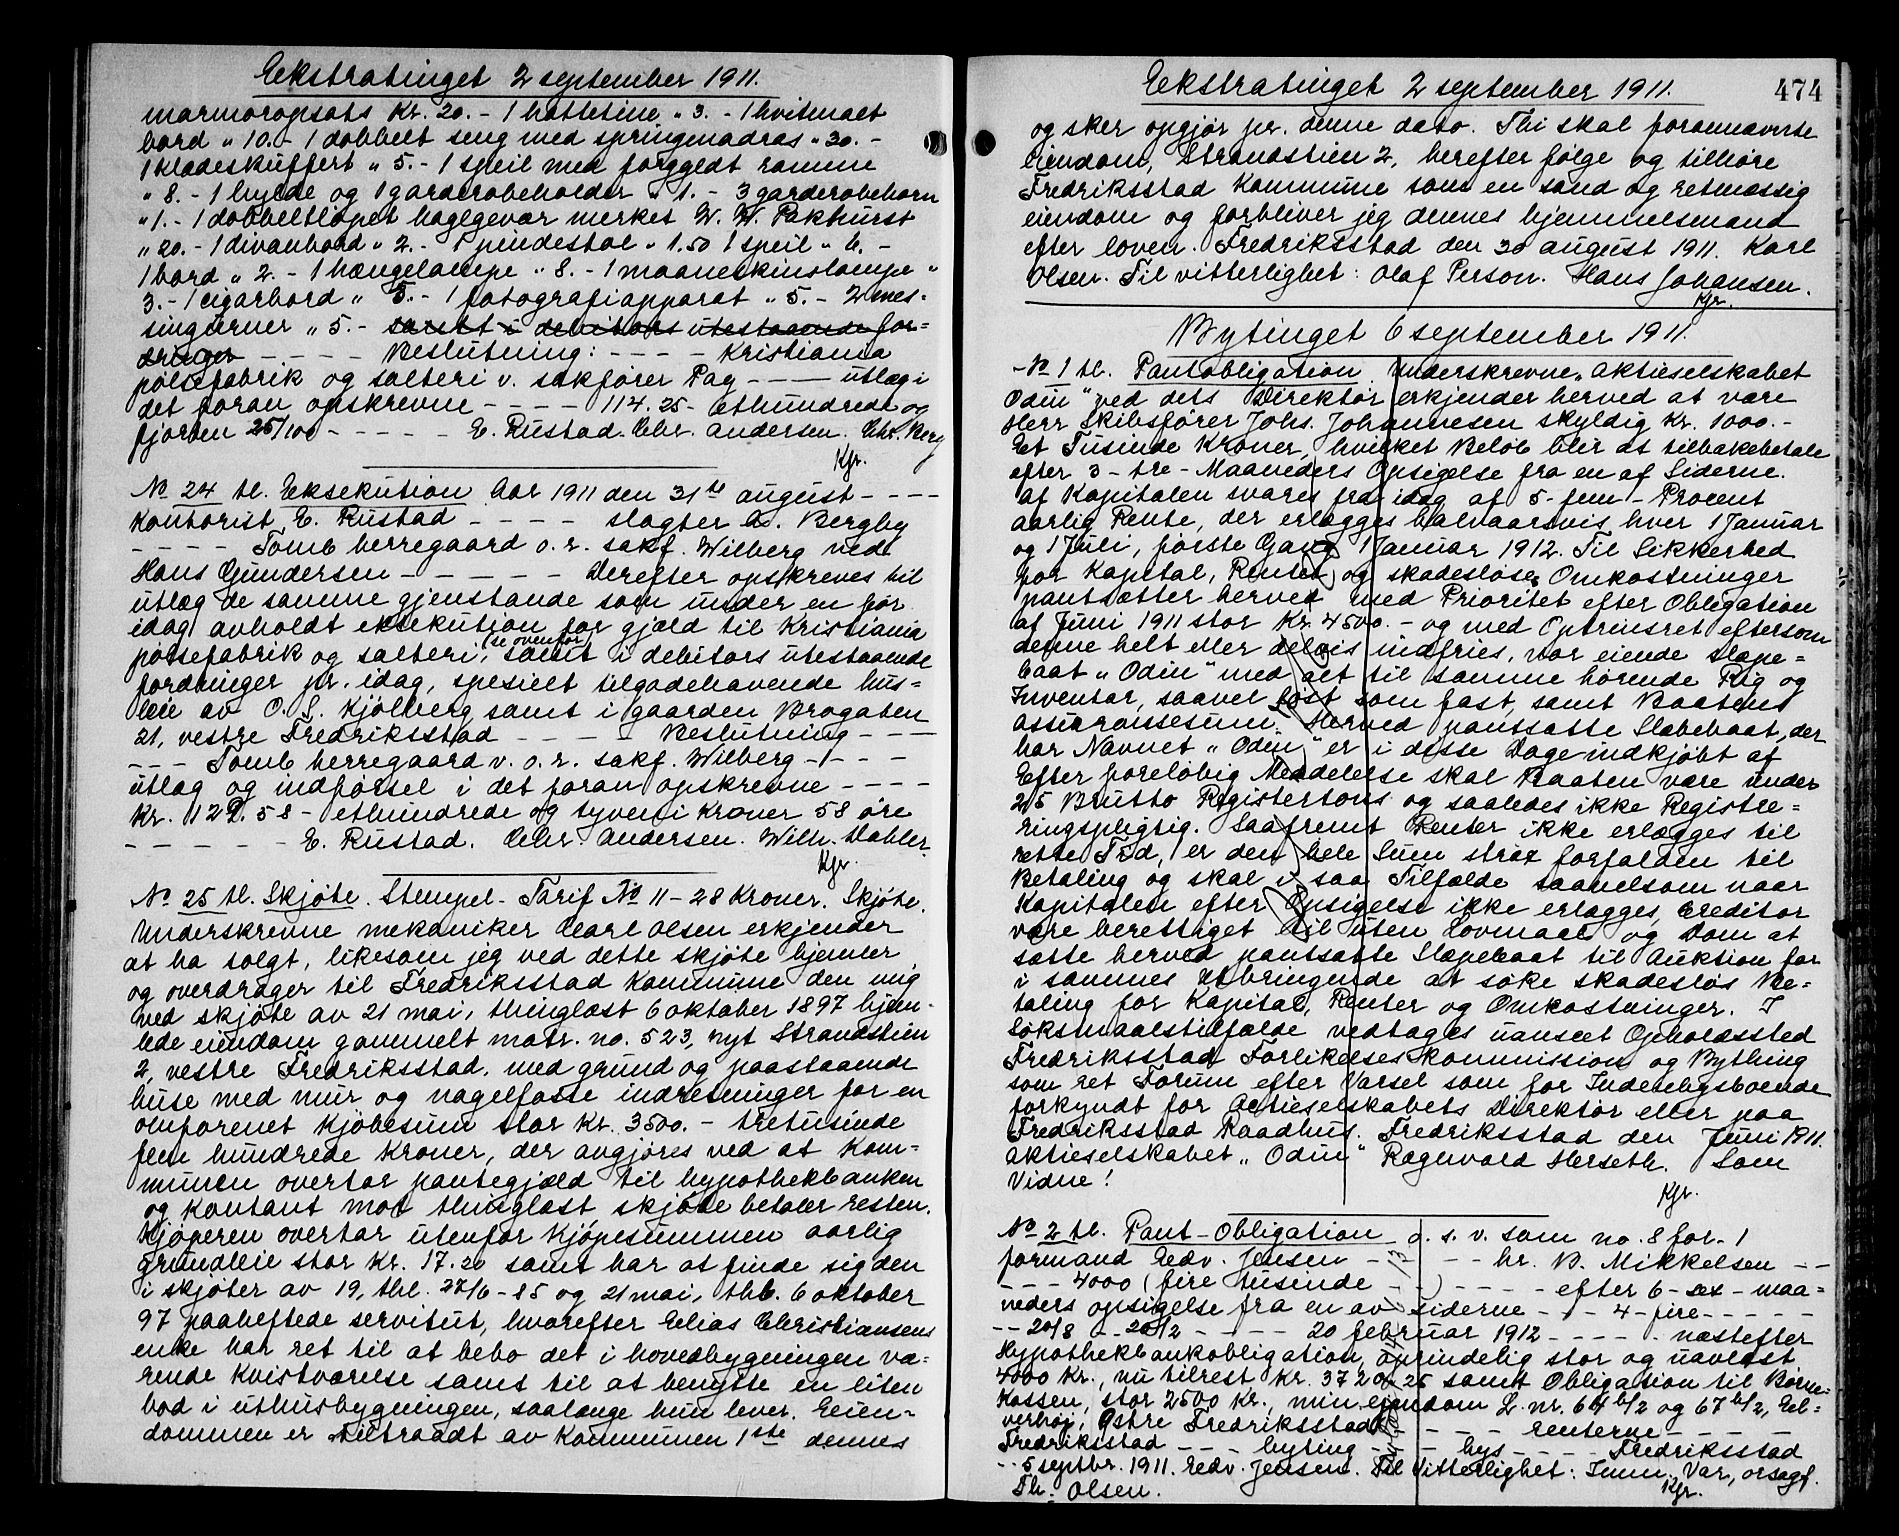 Ekstratinget 2 september 1911.
marmoropsats Kr. 20.- 1 hattetine „ 3.- 1 hvitmalt
bord „ 10.- 1 dobbelt seng med springmadras „ 30.-
1 klædeskuffert „ 5.- 1 speil med forgyldt ramme
„ 8.- 1 hylde og 1 garderobeholder „ 1.- 3 garderobehorn
„ 1.- 1 dobbeltløpet haglgevær merket W. W. Pakhurst
„ 20.- 1 divanbord „ 2.- 1 pindestol „ 1.50 1 speil „ 6.-
1 bord „ 2.- 1 hængelampe „ 8.- 1 maaneskinslampe „
3.- 1 cigarbord „ 5.- 1 fotografiapparat „ 5.- 2 mes-
singurner „ 5.- samt i debitors utestaaende for=
dringer - - - - Beslutning: - - - - Kristiania
pølsefabrik og salteri v. sakfører Pay - - - utlæg i
det foran opskrevne - - - - 114.25 - ethundrede og
fjorten 25/100 - - - - - E. Rustad. Chr. Andersen. Chr. Berg
Kfr.
No 24 tl. Eksekution Aar 1911 den 31te august - - - -
Kontorist E. Rustad - - - - slagter A. Bergby
- - - - Tomb herregaard o.r. sakf. Wilberg ved
Hans Gundersen - - - - - Derefter opskreves til
utlæg de samme gjenstande som under en før
idag avholdt eksekution for gjæld til Kristiania
(se ovenfor)
pølsefabrik og salteri, samt i debitors utestaaende
fordringer pr. idag, spesielt tilgodehavende hus-
leie av O. S. Kjølberg samt i gaarden Brogaten
21, vestre Fredriksstad - - - Beslutning - - -
- - - Tomb herregaard v. o.r. sakf. Wilberg - - - -
utlæg og indførsel i det foran opskrevne - - - -
Kr. 129.58 - ethundrede og tyveni kroner 58 øre
- - - - - E. Rustad. Chr. Andersen. Wilh. Stabler.
Kfr.
No 25 tl. Skjøte. Stempel-Tarif No 11 - 28 Kroner. Skjøte.
Underskrevne mekaniker Carl Olsen erkjender
at ha solgt, likesom jeg ved dette skjøte hjemler
og overdrager til Fredriksstad Kommune den mig
ved skjøte av 21 mai, thinglæst 6 oktober 1897 hjem-
lede eiendom gammelt matr. no. 523, nyt Strandstien
2, vestre Fredriksstad, med grund og paastaaende
huse med mur og nagelfaste indretninger for en
omforenet Kjøbesum stor Kr. 3500.- tretusinde
fem hundrede Kroner, der avgjøres ved at Kom-
munen overtar pantegjæld til hypothekbanken
og kontant mot thinglæst skjøte betaler resten.
Kjøperen overtar utenfor Kjøpesummen aarlig
grundleie stor Kr. 17.20 samt har at finde sig den
i skjøter av 19, thl. 27/6-85 og 21 mai, thl. 6 oktober
97 paaheftede servitut, hvorefter Elias Christiansens
enke har ret til at bebo det i hovedbygningen væ-
rende kvistværelse samt til at benytte en liten
bod i uthusbygningen, saalænge hun lever. Eien-
dommen er tiltraadt av Kommunen 1ste dennes
Ekstratinget 2 september 1911.
474
og sker opgjør pr. denne dato. Thi skal forannævnte
eiendom, Strandstien 2, herefter følge og tilhøre
Fredriksstad Kommune som en sand og retmæssig
eiendom og forbliver jeg dennes hjemmelsmand
efter loven. Fredriksstad den 30 august 1911. Karl
Olsen. Til vitterlighet: Olaf Person. Hans Johansen.
Kfr.
Bytinget 6 september 1911.
No 1 tl. Pantobligation. Underskrevne „Aktieselskabet
Odin" ved dets Direktør erkjender herved at være
Herr Skibsfører Johs. Johannesen skyldig Kr. 1000.-
Et Tusinde Kroner, hvilket Beløb blir at tilbakebetale
efter 3 - tre - Maaneders Opsigelse fra en af Siderne.
Af Kapitalen svares fra idag af 5 - fem - Procent
aarlig Rente, der erlægges halvaarsvis hver 1 Januar
og 1 Juli, første Gang 1 Januar 1912. Til Sikkerhed
for Kapital, Renter og skadesløse Omkostninger
pantsætter herved med Prioritet efter Obligation
af Juni 1911 stor Kr. 4500.- og med Optrinsret eftersom
denne helt eller delvis indfries, vor eiende Slæpe-
baat „Odin" med alt til samme hørende Rig og
Inventar, saavel løst som fast, samt Baatens
Assuransesum. Herved pantsatte Slæbebaat, der
har Navnet „Odin" er i disse Dage indkjøbt af
Efter foreløbig Meddelelse skal Baaten være under
25 Brutto Registertons og saaledes ikke Registre-
ringspligtig. Saafremt Renter ikke erlægges til
rette Tid, er den hele Sum strax forfalden til
Betaling og skal i saa Tilfælde saavelsom naar
Kapitalen efter Opsigelse ikke erlægges, Creditor
være berettiget til uten Lovmaal og Dom at
sætte herved pantsatte Slæpebaat til Auktion for
i sammes Utbringende at søke skadesløs Be-
taling for Kapital, Renter og Omkostninger. I
Søksmaalstilfælde vedtages uanseet Opholdssted
Fredriksstad Forlikelseskommission og Bything
som ret Forum efter Varsel som for Indenbysboende
forkyndt for Actieselskabets Direktør eller paa
Fredriksstad Raadhus. Fredriksstad den Juni 1911.
Aktieselskabet „Odin" Ragnvald Herseth. Som
Vidne!
Kfr.
No 2 tl. Pant-Obligation o.s.v. som no. 8 for. 1
formand Edv. Jensen - - - - hr. B. Mikkelsen - -
- - - 4000 (fire tusinde - - ) - - - - efter 6 - sex - maa-
neders opsigelse fra en av siderne - - - 4 - fire - - - - -
- - 20/8 - - 20/2 - - - - 20 februar 1912 - - - - næstefter
Hypothekbankobligation, oprindelig stor og uavlæst
4000 Kr., nu tilrest Kr. 3720.25 samt Obligation til Børne-
Kassen, stor 2500 Kr., min eiendom L. nr. 64 b/2 og 67 b/2, Eel-
verhøi, Østre Fredriksstad - - - - renterne - - - - -
Fredriksstad - - - byting - - - bys - - - - Fredriksstad
- - 5 septbr. 1911. Edv. Jensen. Til Vitterlighet: Imm. Var, orsagf.
Th. Olsen.
Kfr.